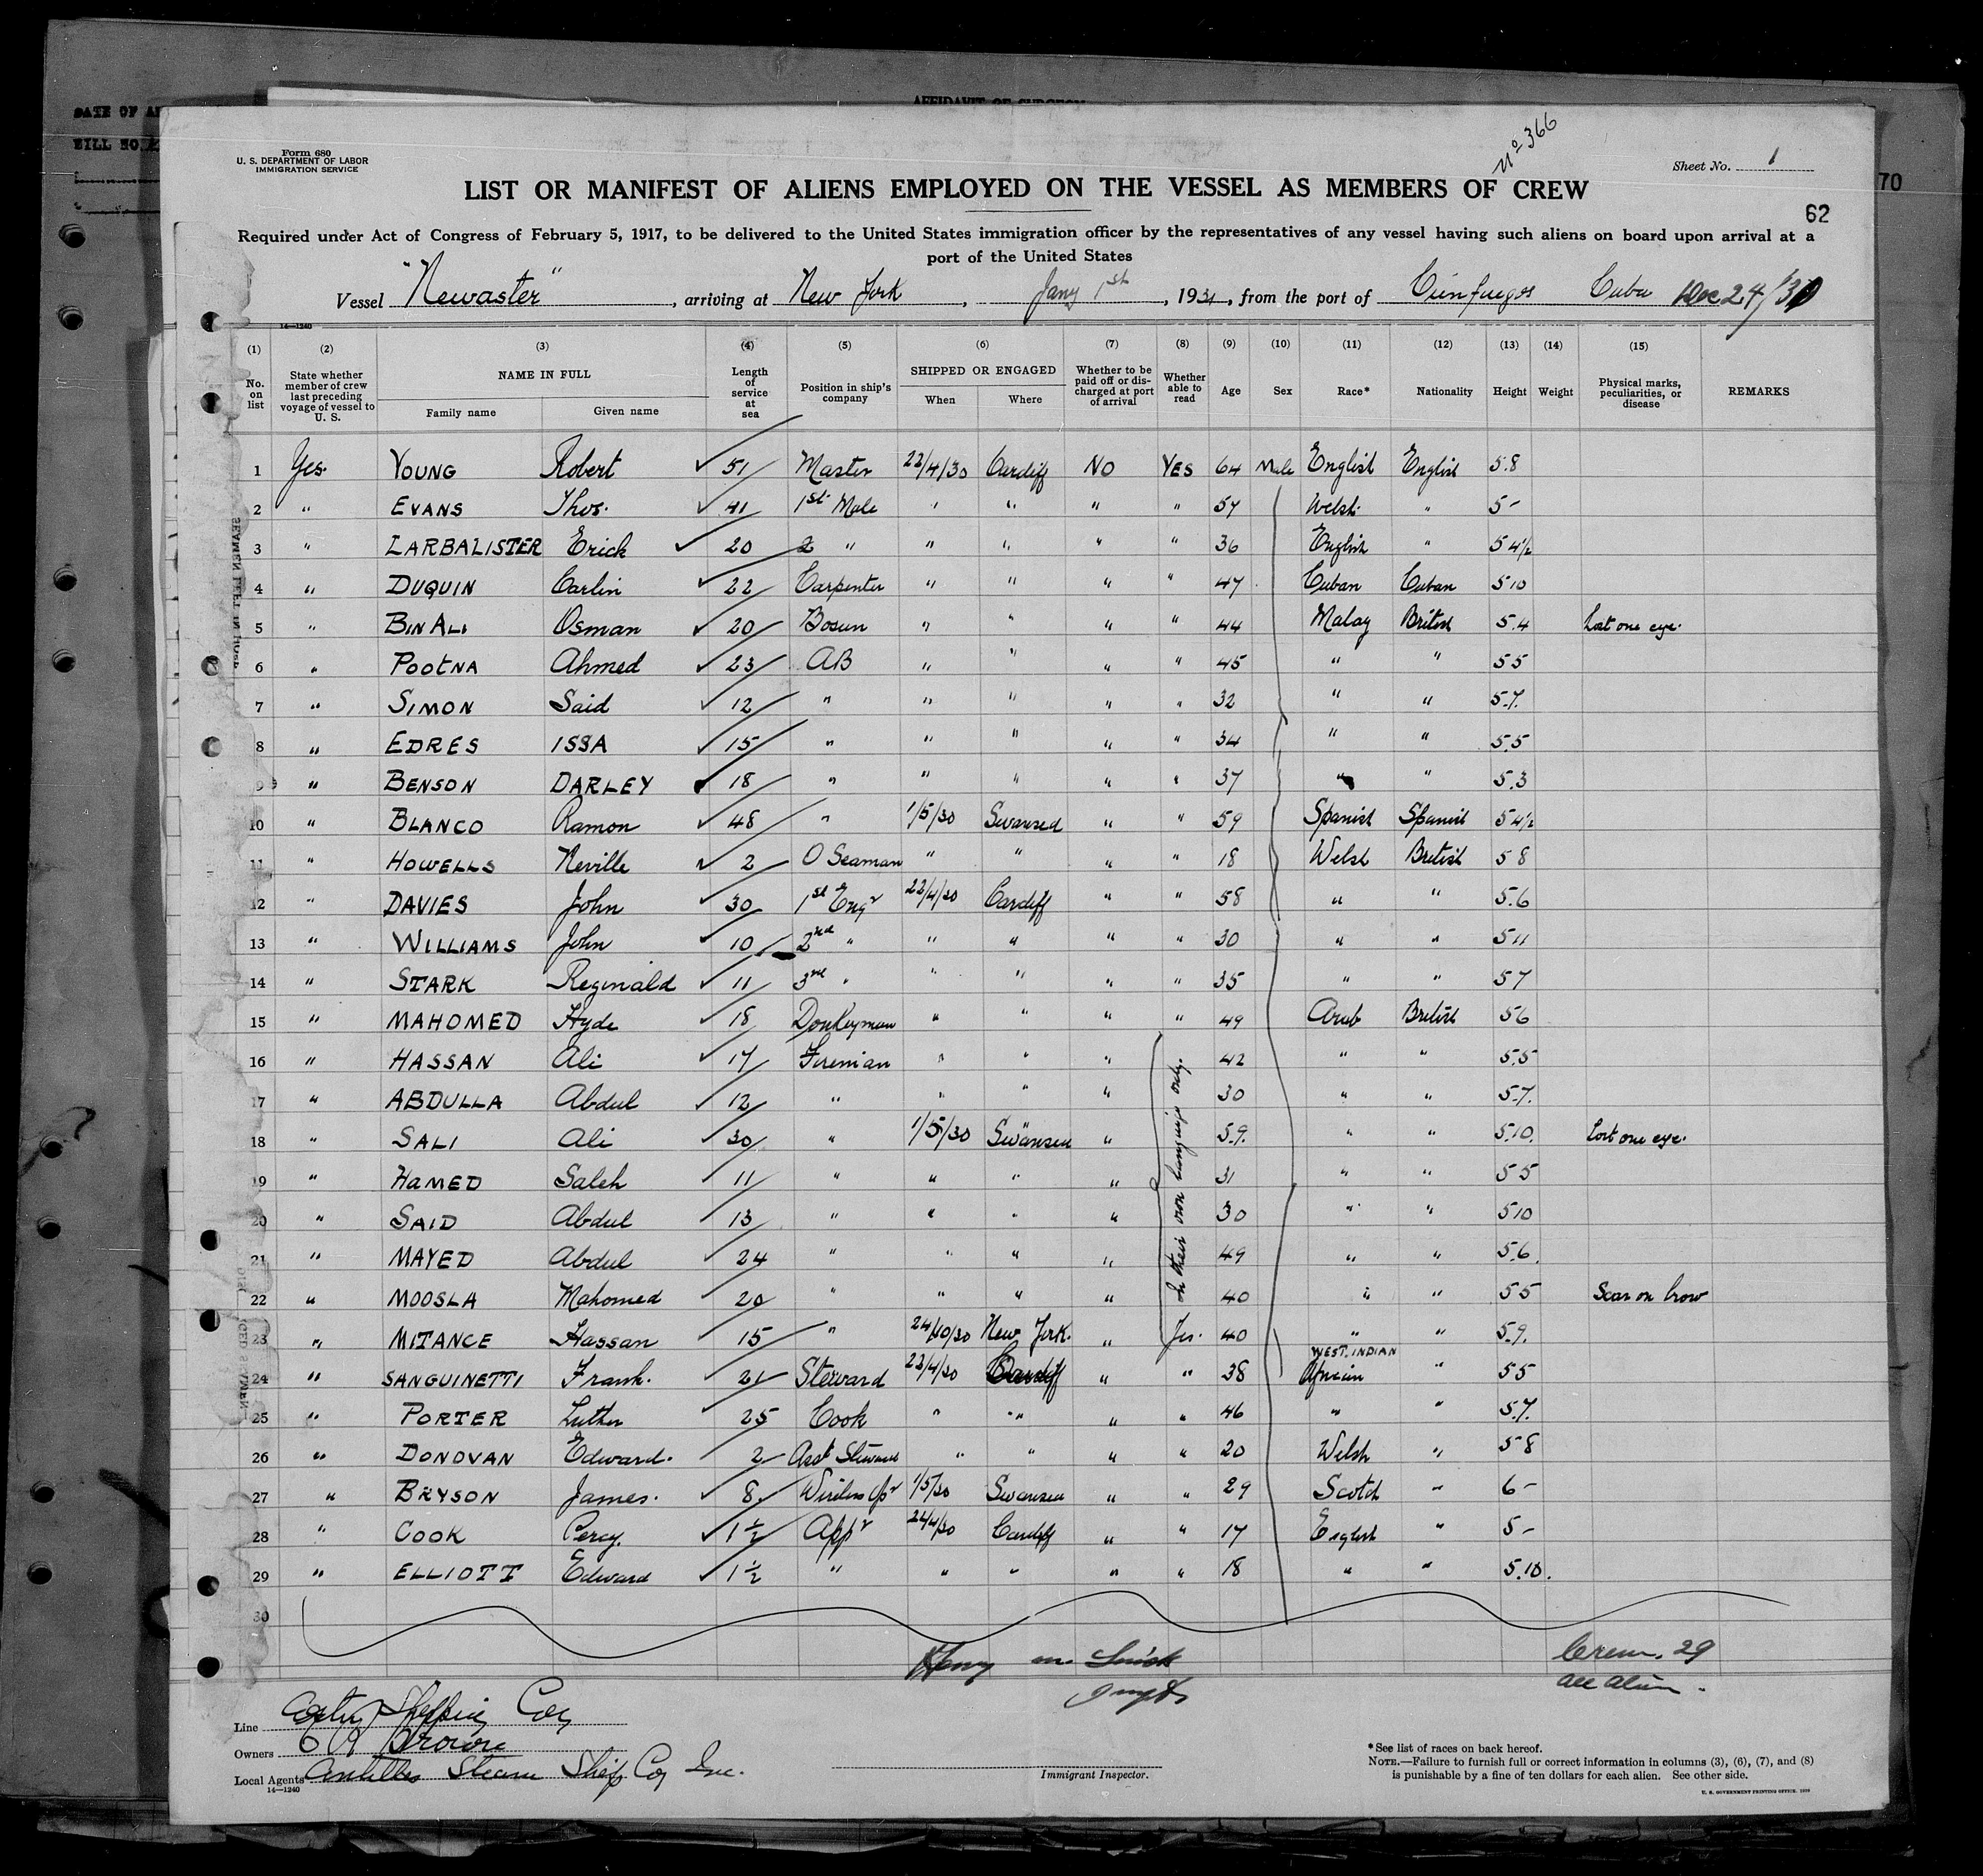 DATE OF
AFFIDAVIT OF SURGEON
BILL NO.
70
Form 680
U. S. DEPARTMENT OF LABOR
IMMIGRATION SERVICE
No 366
Sheet No. 1
LIST OR MANIFEST OF ALIENS EMPLOYED ON THE VESSEL AS MEMBERS OF CREW
62
Required under Act of Congress of February 5, 1917, to be delivered to the United States immigration officer by the representatives of any vessel having such aliens on board upon arrival at a
port of the United States
Vessel "Newaster", arriving at New York, Jany 1st, 1931, from the port of Cienfuegos Cuba Dec 24/30
14—1240
(1) (2) (3) (4) (5) (6) (7) (8) (9) (10) (11) (12) (13) (14) (15)
No. on list State whether member of crew last preceding voyage of vessel to U. S. NAME IN FULL Family name Given name Length of service at sea Position in ship's company SHIPPED OR ENGAGED When Where Whether to be paid off or discharged at port of arrival Whether able to read Age Sex Race* Nationality Height Weight Physical marks, peculiarities, or disease REMARKS
1 Yes. YOUNG Robert ✓ 51 Master 22/4/30 Cardiff NO YES 64 Male English English 5.8
2 " EVANS Thos. ✓ 41 1st Mate " " " " 57 Welsh " 5-
3 " LARBALISTER Erick ✓ 20 2 " " " " " 36 English " 5 4½
4 " DUQUIN Carlin ✓ 22 Carpenter " " " 47 Cuban Cuban 5 10
5 " BIN ALI Osman ✓ 20 Bosun " " " " 44 Malay British 5.4 Lost one eye.
6 " POOTNA Ahmed ✓ 23 AB " " " " 45 " " 5 5
7 " SIMON Said ✓ 12 " " " " " 32 " " 5.7.
8 " EDRES ISSA ✓ 15 " " " " " 34 " " 5.5
9 " BENSON DARLEY ✓ 18 " " " " " 37 " " 5.3
10 " BLANCO Ramon ✓ 48 " 1/5/30 Swansea " " 59 Spanish Spanish 5 4½
11 " HOWELLS Neville ✓ 2 O Seaman " " " " 18 Welsh British 5 8
12 " DAVIES John ✓ 30 1st Engr 22/4/30 Cardiff " " 58 " " 5.6
13 " WILLIAMS John ✓ 10 2nd " " " " " 30 " " 5 11
14 " STARK Reginald ✓ 11 3rd " " " " " 35 " " 5 7
15 " MAHOMED Hyde ✓ 18 Donkeyman " " " " 49 Arab British 5 6
16 " HASSAN Ali ✓ 17 Fireman " " " 42 " " 5.5
17 " ABDULLA Abdul ✓ 12 " " " " 30 " " 5.7.
18 " SALI Ali ✓ 30 " 1/5/30 Swansea " 59. " " 5.10. Lost one eye.
19 " HAMED Saleh ✓ 11 " " " " 31 " " 5 5
20 " SAID Abdul ✓ 13 " " " " 30 " " 5 10
21 " MAYED Abdul ✓ 24 " " " " 49 " " 5.6.
22 " MOOSLA Mahomed ✓ 20 " " " " 40 " " 5 5 Scar on brow
In their own language only.
23 " MITANCE Hassan ✓ 15 " 24/10/30 New York. " Yes. 40 " " 5.9.
24 " SANGUINETTI Frank. ✓ 21 Steward 22/4/30 Cardiff " " 38 WEST. INDIAN African " 5 5
25 " PORTER Luther ✓ 25 Cook " " " " 46 " " 5.7.
26 " DONOVAN Edward. 2 Asst Steward " " " " 20 Welsh " 5 8
27 " BRYSON James. ✓ 8. Wireless Opr 1/5/30 Swansea " " 29 Scotch " 6-
28 " COOK Percy. ✓ 1½ Appr 22/4/30 Cardiff " " 17 English " 5-
29 " ELLIOTT Edward ✓ 1½ " " " " " 18 " " 5.10.
30
Crew. 29
all alien.
Line Shipping Coy
Owners Brown
Local Agents Antilles Steam Ship Coy Inc.
14—1240
Immigrant Inspector.
*See list of races on back hereof.
NOTE.—Failure to furnish full or correct information in columns (3), (6), (7), and (8)
is punishable by a fine of ten dollars for each alien. See other side.